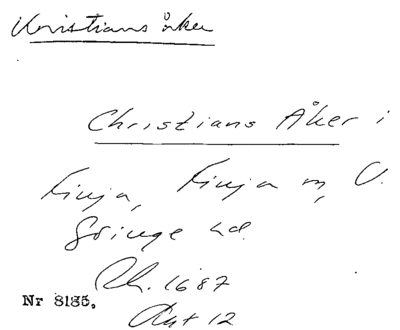 Kristians åker
Christians Åker i
Finja, Finja sn, V.
Göinge hd.
Rh. 1687
Nr 8135.
Akt 12